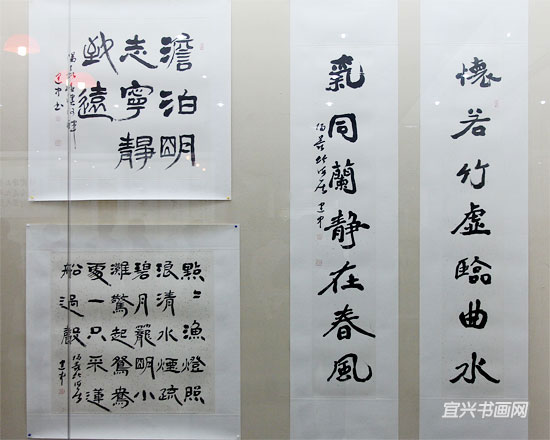 懷若竹虛臨曲水
氣同蘭靜在春風
澹泊明
志寧靜
致遠
點〻漁燈照
浪清水煙疏
碧月朧明小
灘驚起鴛鴦
處一只采蓮
船過聲
宜兴书画网